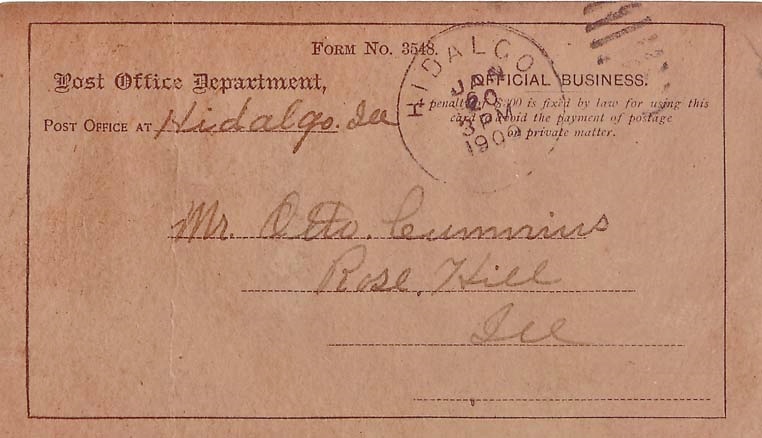 FORM No. 3548.
Post Office Department,
OFFICIAL BUSINESS.
A penalty of $300 is fixed by law for using this
card to avoid the payment of postage
on private matter.
POST OFFICE AT Hidalgo. Ill
HIDALGO
JAN
20
3 PM
190
Mr. Otto. Cummins
Rose. Hill
Ill